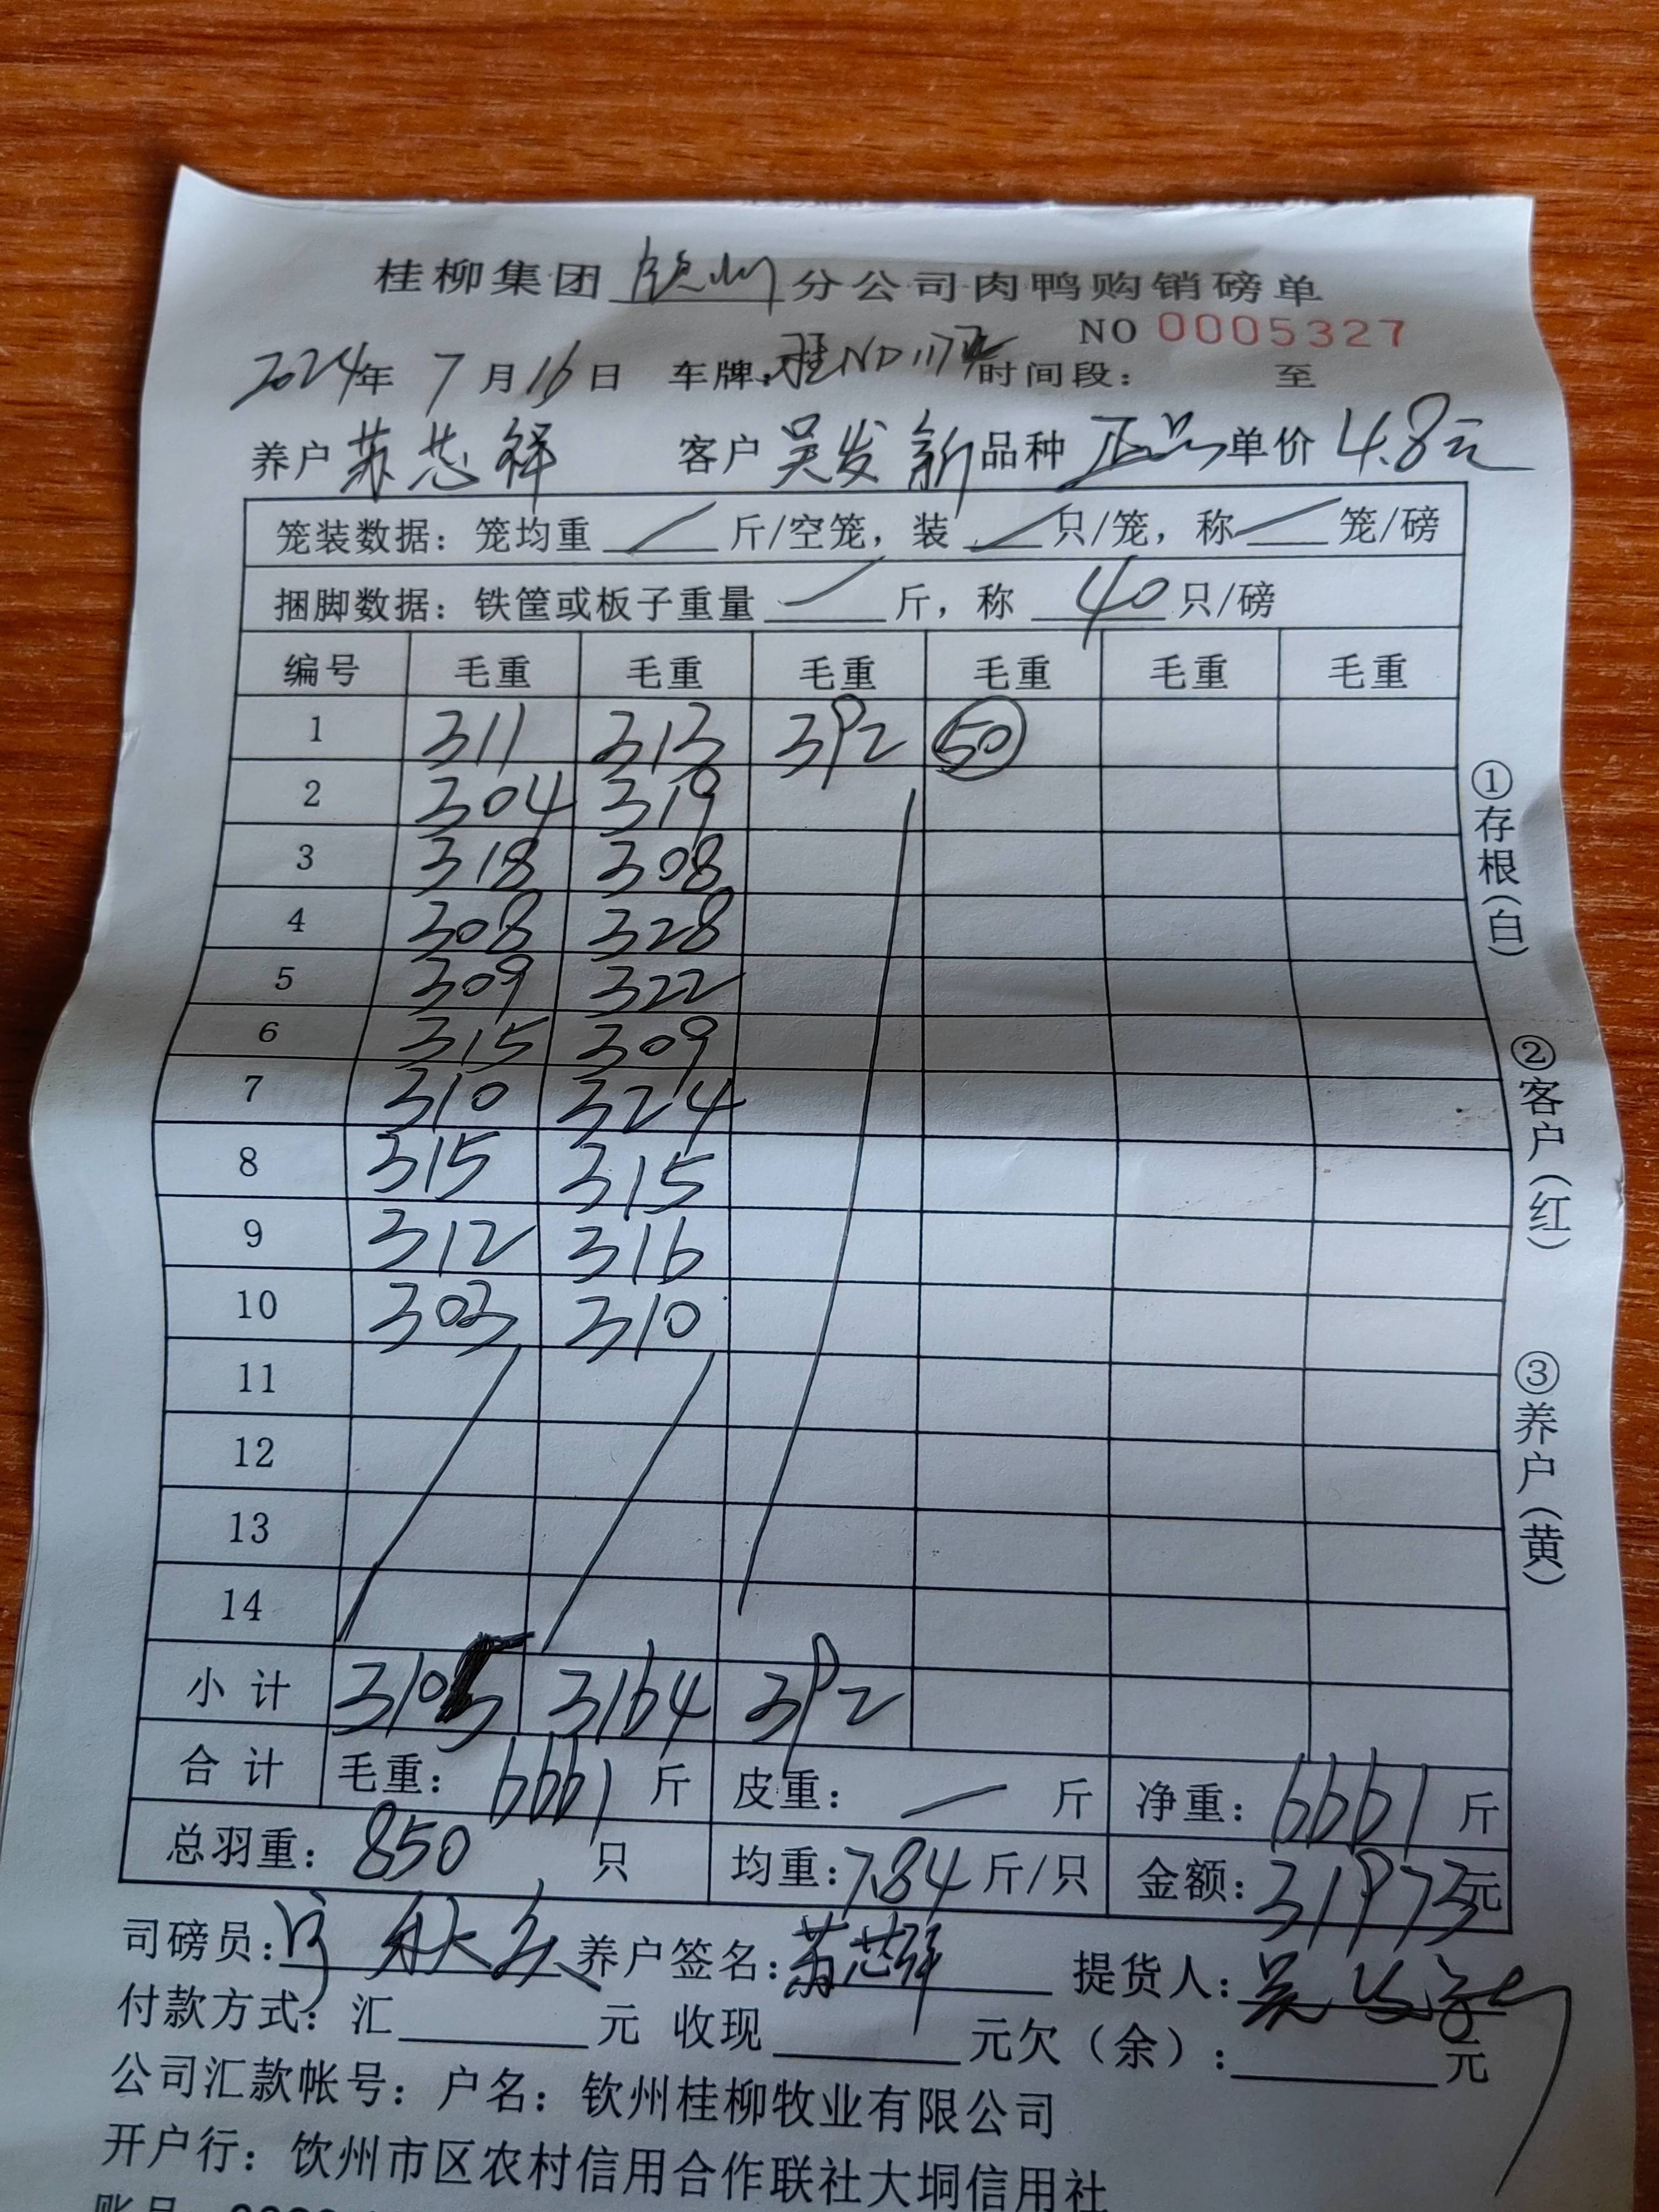 桂柳集团钦州分公司肉鸭购销磅单
NO 0005327
2024年 7月16日 车牌: 时间段: 至
养户 苏芯祥 客户 吴发新 品种 正品 单价 4.8元
笼装数据：笼均重 / 斤/空笼，装 / 只/笼，称 / 笼/磅
捆脚数据：铁筐或板子重量 / 斤，称 40 只/磅
编号 毛重 毛重 毛重 毛重 毛重 毛重
1 311 313 392 50
2 304 319
3 318 308
4 308 328
5 309 322
6 315 309
7 310 324
8 315 315
9 312 316
10 303 310
11
12
13
14
小计 3105 3164 392
合计 毛重：6661斤 皮重：/ 斤 净重：6661斤
总羽重：850 只 均重：7.84斤/只 金额：31973元
司磅员： 养户签名：苏芯祥 提货人：吴发新
付款方式：汇 元 收现 元欠（余）： 元
公司汇款帐号：户名：钦州桂柳牧业有限公司
开户行：钦州市区农村信用合作联社大垌信用社
①存根（白）
②客户（红）
③养户（黄）